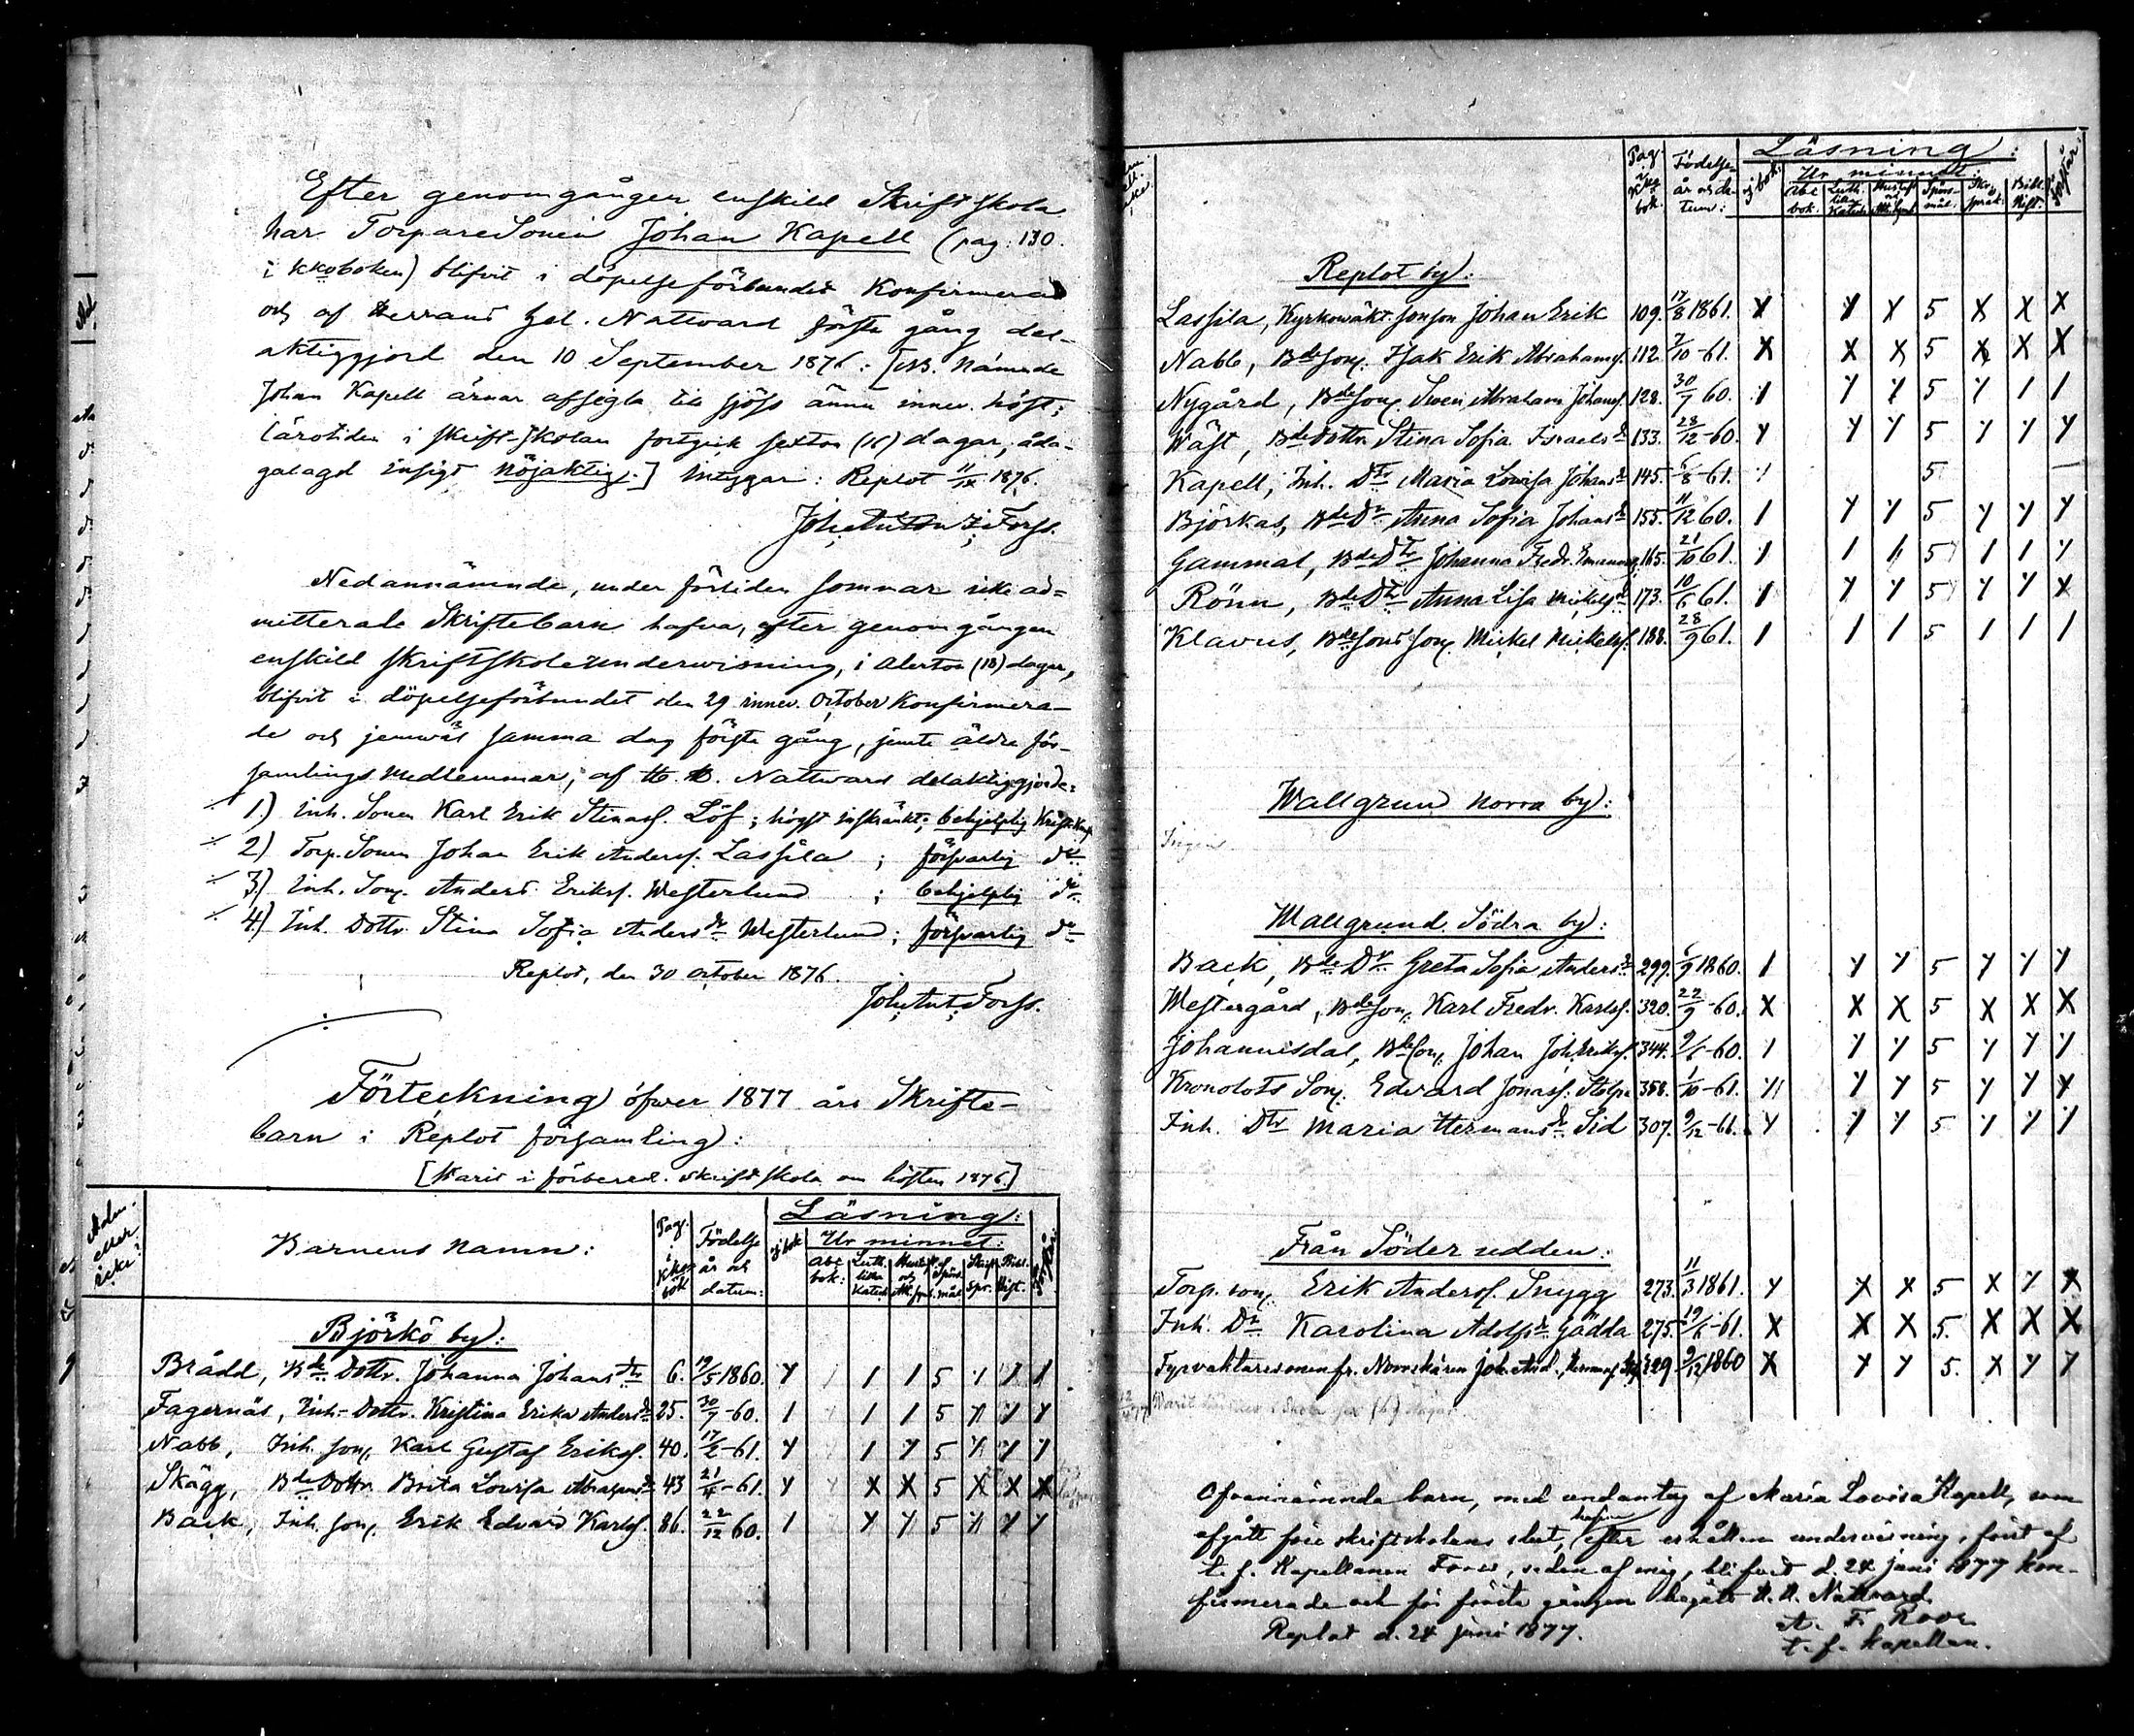 Efter genomgången enskild Skriftskola
har TorpareSonen Johan Kapell (pag: 130.
i kkoboken) blifvit i döpelseförbundet Konfirmerad
och af Herrans Hel. Nattvard första gång del-
aktiggjord den 10 September 1876. [NB. Nämnde
Johan Kapell ärnar afsegla till sjöss ännu innev. höst;
lärotiden i skrift-skolan fortgick sexton (16) dagar, åda-
galagd insigt nöjaktig.] Intygar: Replot 11/IX 1876.
Joh. Anton Z. Forss.
Nedannämnde, under förliden sommar icke ad=
mitterade Skriftebarn hafva, efter genomgången
enskild skriftskoleunderwisning, i aderton (18) dagar,
blifvit i döpelseförbundet den 29 innev. October Konfirmera-
de och jemwäl samma dag första gång, jemte äldre för-
samlingsmedlemmar, af H. H. Nattward delaktiggjorde:
1.) Inh. Sonen Karl Erik Stinass. Löf; högst inskränkt; behjelplig
2) Torp. Sonen Johan Erik Anderss. Lassila; försvarlig do
3.) Inh. Son. Anders Erikss. Westerlund; behjelplig do
4.) Inh. Dottr. Stina Sofia Andersdr Westerlund; försvarlig do
Replot, den 30 October 1876.
Joh. Ant. Forss.
Förteckning öfwer 1877 års Skrifte-
barn i Replot församling:
[Warit i förbered. skriftskola om hösten 1876.]
Adm. eller icke? Barnens namn: Pag. i kko bok Födelse år och datum: Läsning: i bok Ur minnet: abc bok: Luth. lilla Katech. Spörs mål Skrif. Spr. Bibl. Hist. Förstår:
Björkö by:
Brådd, Bde Dottr. Johanna Johansdtr 6. 19/5 1860. 5
Fagernäs, Inh. Dottr. Kristina Erika Andersdr 25. 30/7 -60. 5
Nabb, Inh. son, Karl Gustaf Erikss. 40. 17/2 -61. 5
Skägg, Bde Dottr. Brita Lovisa 43 21/4 -61. X X 5 X X X
Back, Inh. son, Erik Edvard Karlss. 86. 22/12 60. 5
Pag. i kko bok. Födelse- år och da- tum: Läsning: i bok. Ur minnet: abc bok. Luth. lilla Katech. Spörs- mål. Skr. språk. Bibl. Hist. Förstår:
Replot by:
Lassila, Kyrkowäkt. sonson Johan Erik 109. 17/8 1861. X X X 5 X X X
Nabb, Bde Son. Isak Erik Abrahams. 112. 7/10 -61. X X X 5 X X X
Nygård, Bde Son. Sven Abraham Johans. 128. 30/7 60. 5
Wäst, Bde Dottr. Stina Sofia Israelsdr 133. 23/12 -60. 5
Kapell, Inh. Dtr Maria Lovisa Johansdr 145. 6/8 -61. 5 —
Björkas, Bde Dr Anna Sofia Johansdr 155. 11/12 60. 5
Gammal, Bde Dtr Johanna Fredr. 165. 21/10 61. 5
Rönn, Bde Dtr Anna Lisa Mickelsdr 173. 10/6 61. 5
Klavus, Bde Sons Son, Mickel Mickelss. 188. 28/9 61. 5
Wallgrund Norra by:
Ingen.
Wallgrund Södra by:
Back, Bde Dr Greta Sofia Andersdr 299. 6/9 1860. 5
Westergård, Bde Son, Karl Fredr. Karlss. 320. 22/9 -60. X X X 5 X X X
Johannisdal, Bde Son, Johan Joh. Erikss. 344. 9/6 -60. 5
Kronolots Son, Edvard Jonass. Stolpe 358. 1/10 -61. 5
Inh. Dtr Maria Hermansdr Sid 307. 9/12 -61. 5
Från Söderudden:
Torp. son, Erik Anderss. Snygg 273. 11/3 1861. 5
Inh. Dr Karolina Adolfsdr Gädda 275. 19/6 -61. X X X 5. X X X
Fyrvaktaresonen fr. Norrskären Joh. And. 129. 9/12 1860 5.
Ofvannämnda barn, med undantag af Maria Lovisa Kapell, som
afgått före skriftskolans slut, hafva efter erhållen undervisning, först af
t. f. Kapellanen Forss, sedan af mig, blifvit d. 24 juni 1877 kon-
firmerade och för första gången begått H. H. Nattvard.
Replot d. 24 juni 1877.
A. F. Roos
t. f. kapellan.